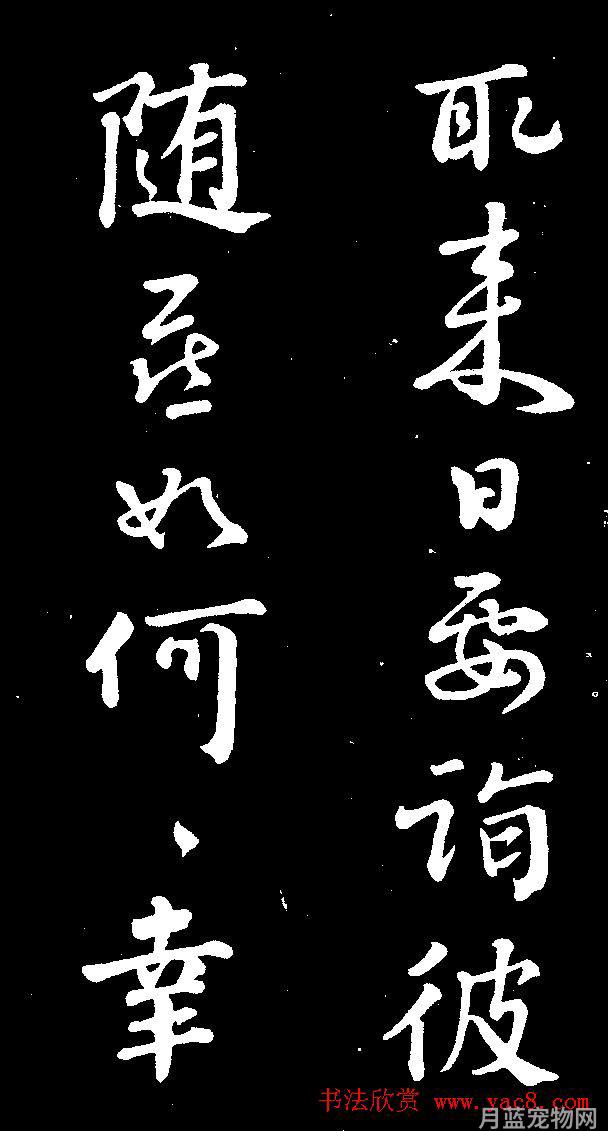 取来日要詢彼
随如何、幸
书法欣赏 www.yac8.com
月蓝宠物网